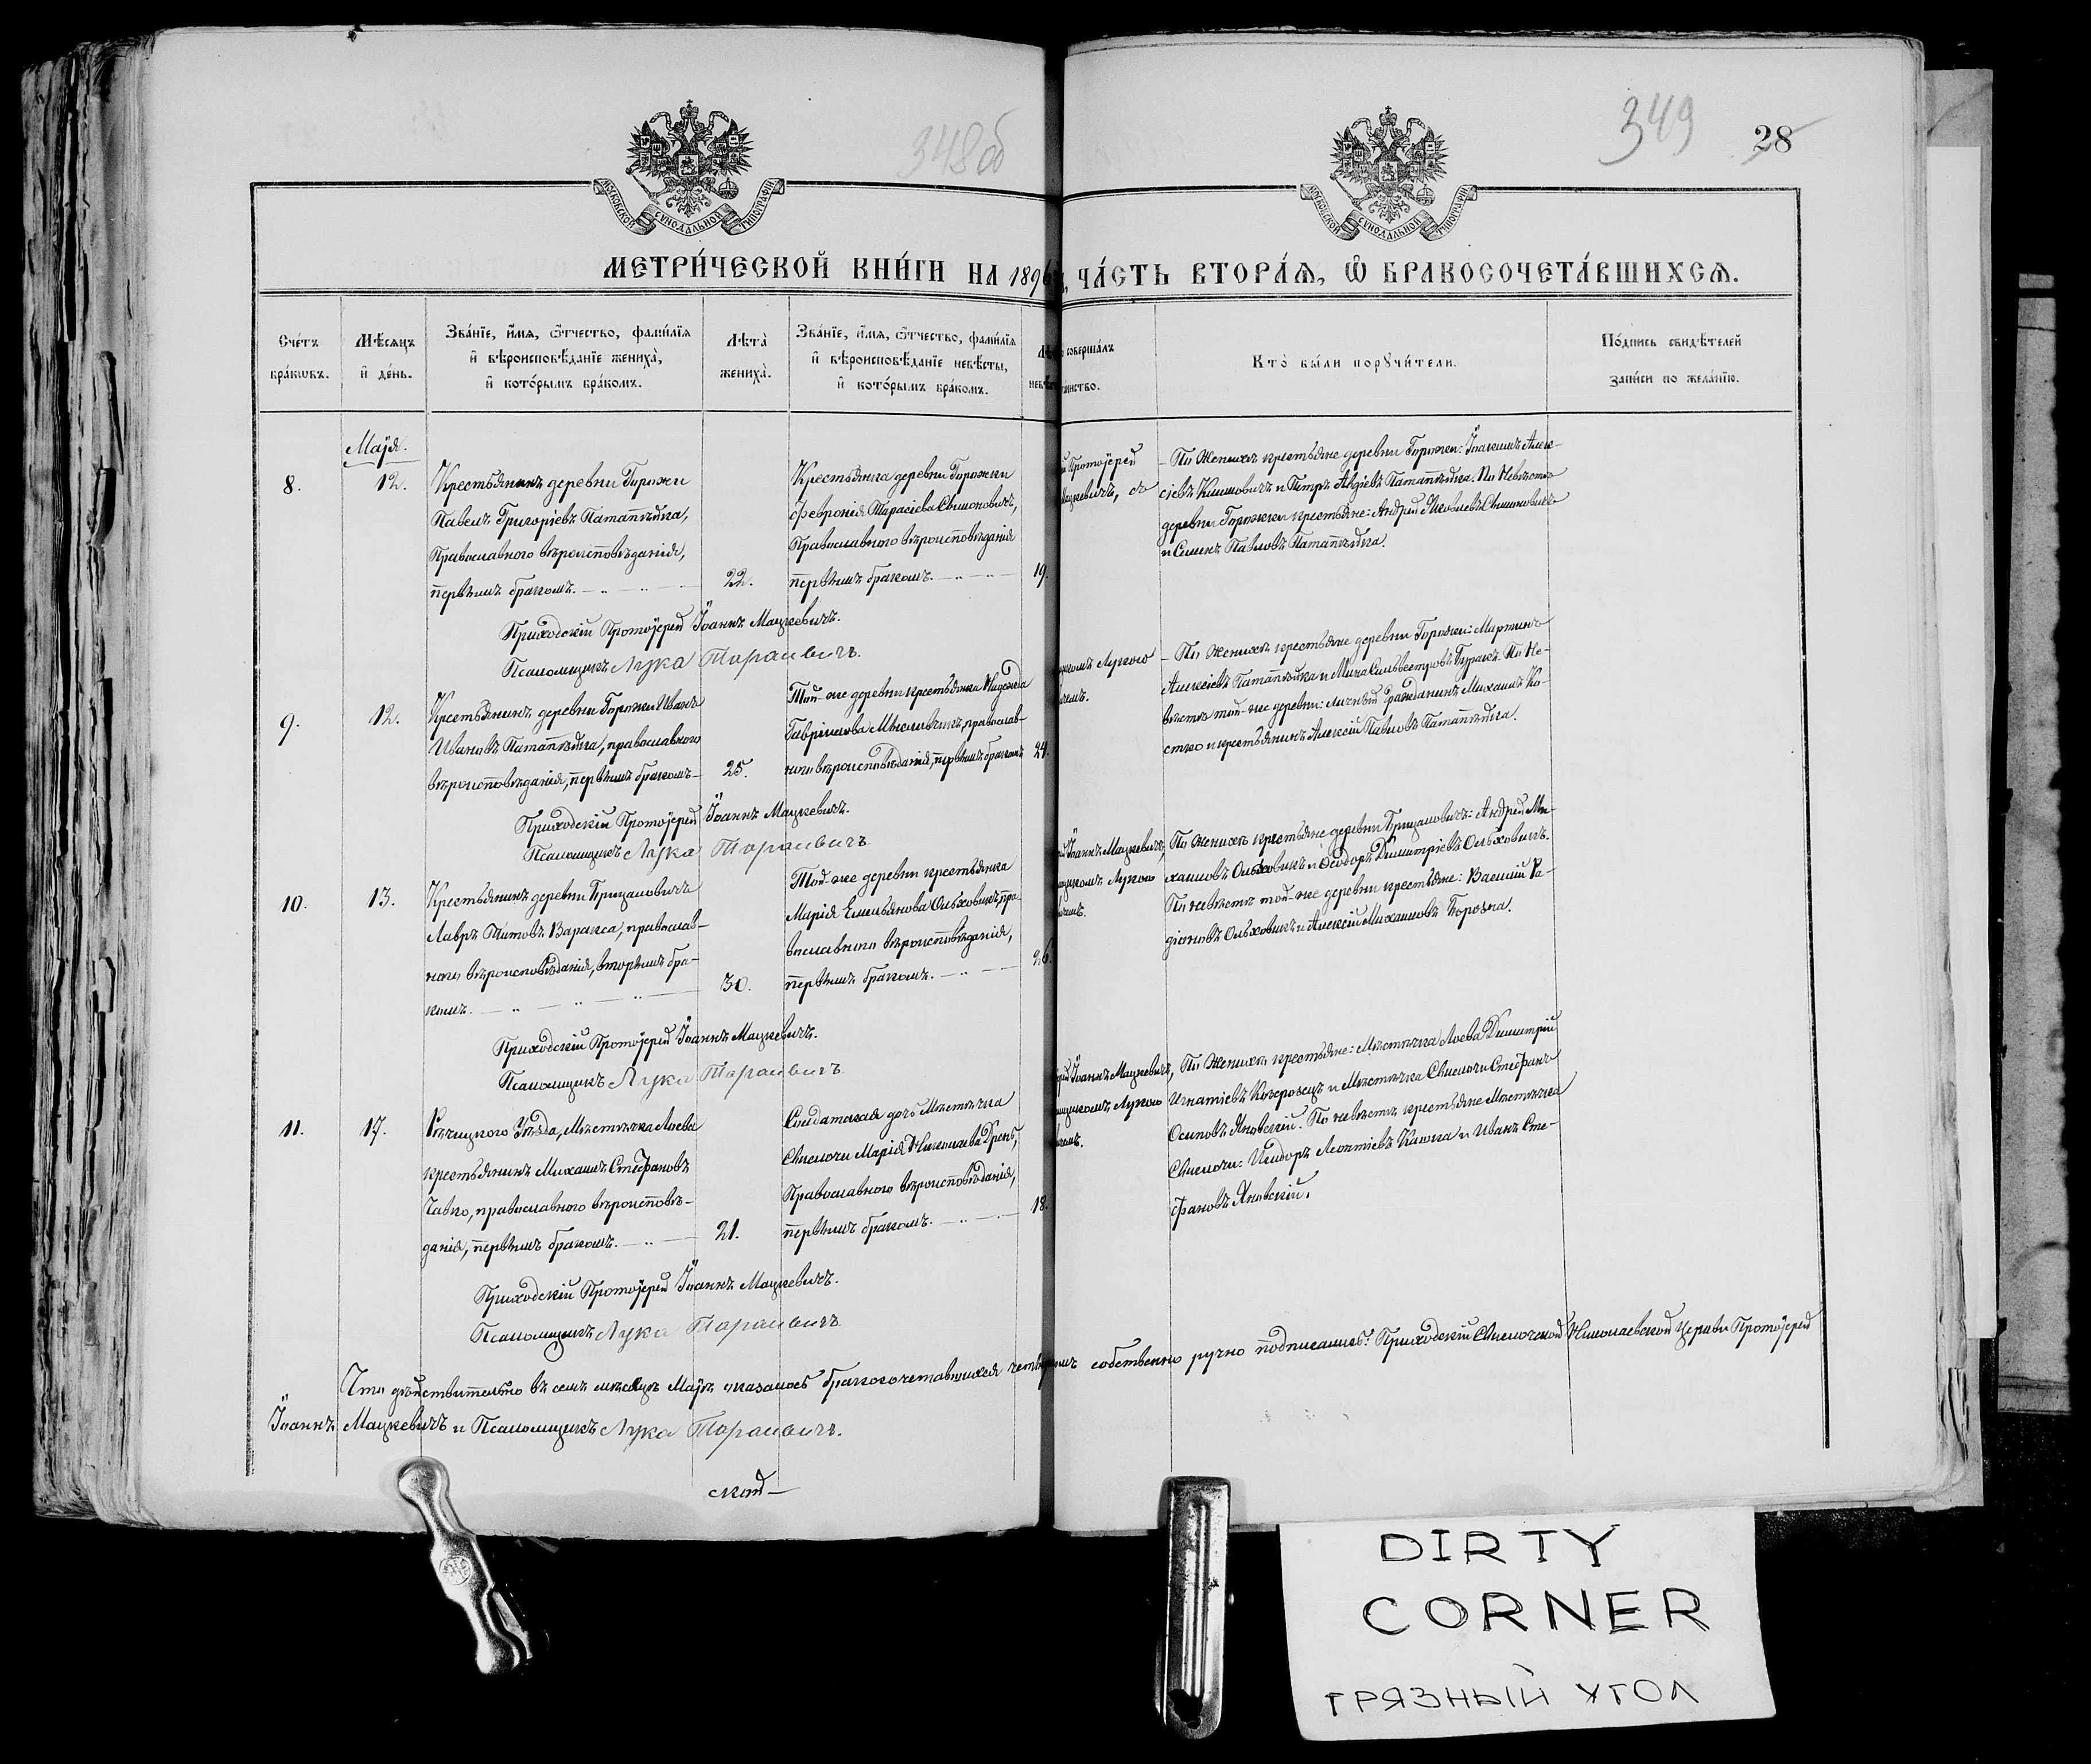 348об
349
28
МОСКОВСКОЙ СѴНОДАЛЬНОЙ ТИПОГРАФІИ
МОСКОВСКОЙ СѴНОДАЛЬНОЙ ТИПОГРАФІИ
МЕТРИ́ЧЕСКОЙ КНИ́ГИ НА 1896
ЧА́СТЬ ВТОРА́Ѧ, Ѽ БРАКОСОЧЕТА́ВШИХСѦ.
Сче́тъ бра́кѡвъ.
Мѣ́сѧцъ и҆ де́нь.
Зва́нїе, и҆́мѧ, ѻ҆́тчество, фами́лїѧ
и҆ вѣроисповѣ́данїе жениха̀,
и҆ кото́рымъ бра́комъ.
Лѣта̀ жениха̀.
Зва́нїе, и҆́мѧ, ѻ҆́тчество, фами́лїѧ
и҆ вѣроисповѣ́данїе невѣ́сты,
и҆ кото́рымъ бра́комъ.
совершáлъ
Кто̀ бы́ли порꙋчи́тели.
По́дпись свидѣ́телей
за́писи по жела́нїю.
Маія.
8.
12.
Крестьянинъ деревни Горожи
Павелъ Григоріевъ Патапѣйка,
Православнаго вѣроисповѣданія,
первымъ бракомъ.
22.
Крестьянка деревни Горожки
Февронія Тарасіева Симоновичъ,
Православнаго вѣроисповѣданія
первымъ бракомъ.
19.
Протоіерей
Мацкевичъ, съ
По Женихѣ крестьяне деревни Горожи: Іоакимъ Алек-
сіевъ Климовичъ и Петръ Авдіевъ Патапѣйка. По Невѣстѣ
деревни Горожки крестьяне: Андрей Яковлевъ Симоновичъ
и Семенъ Павловъ Патапѣйка.
Приходскій Протоіерей Іоаннъ Мацкевичъ.
Псаломщикъ Лука Тарасевичъ.
9.
12.
Крестьянинъ деревни Горожи Иванъ
Ивановъ Патапѣйка, православнаго
вѣроисповѣданія, первымъ бракомъ
25.
Той-же деревни крестьянка Надежда
Гавріилова православ-
наго вѣроисповѣданія, первымъ бракомъ
24.
Лукою
По Женихѣ крестьяне деревни Горожи: Мартинъ
Алексіевъ Патапѣйка и Мина Сильвестровъ Буракъ. По Не-
вѣстѣ той-же деревни: личный Гражданинъ Михаилъ Ко-
стко и крестьянинъ Алексій Павловъ Патапѣйка.
Приходскій Протоіерей Іоаннъ Мацкевичъ.
Псаломщикъ Лука Тарасевичъ.
10.
13.
Крестьянинъ деревни Брицаловичъ
Лавръ Титовъ Варакса, православ-
наго вѣроисповѣданія, вторымъ бра-
комъ.
30.
Той-же деревни крестьянка
Марія Емельянова Ольховикъ, пра-
вославнаго вѣроисповѣданія,
первымъ бракомъ.
26.
Іоаннъ Мацкевичъ,
Лукою
По Женихѣ крестьяне деревни Брицаловичъ: Андрей Ми-
хаиловъ Ольховикъ и Ѳеодоръ Димитріевъ Ольховикъ.
По невѣстѣ той-же деревни крестьяне: Василій Ра-
діоновъ Ольховикъ и Алексій Михаиловъ Борозна.
Приходскій Протоіерей Іоаннъ Мацкевичъ.
Псаломщикъ Лука Тарасевичъ
11.
17.
Рѣчицкаго Уѣзда, Мѣстечка Лоева
крестьянинъ Михаилъ Стефановъ
православнаго вѣроисповѣ-
данія, первымъ бракомъ.
21.
Солдатская дочь Мѣстечка
Свислочи Марія Николаева Дрень,
Православнаго вѣроисповѣданія,
первымъ бракомъ.
18.
Іоаннъ Мацкевичъ,
Лукою
По Женихѣ крестьяне: Мѣстечка Лоева Димитрій
Игнатіевъ и Мѣстечка Свислочи Стефанъ
Осиповъ Яновскій. По невѣстѣ крестьяне Мѣстечка
Свислочи: Исидоръ Леонтіевъ и Иванъ Сте-
фановъ Яновскій.
Приходскій Протоіерей Іоаннъ Мацкевичъ.
Псаломщикъ Лука Тарасевичъ
Что дѣйствительно въ семъ мѣсяцѣ Маіѣ оказалось бракосочетавшихся собственно ручно подписались: Приходскій Свислочской Николаевской Церкви Протоіерей
Іоаннъ Мацкевичъ и Псаломщикъ Лука Тарасевичъ.
DIRTY
CORNER
ГРЯЗНЫЙ УГОЛ